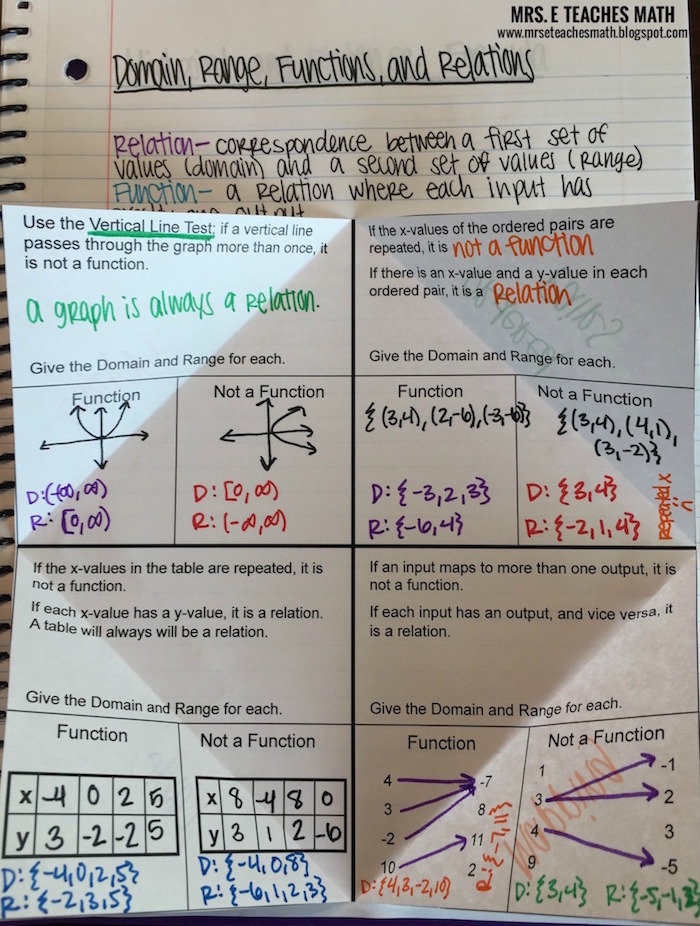 MRS. E TEACHES MATH
www.mrseteachesmath.blogspot.com
Domain, Range, Functions, and Relations
Relation- correspondence between a first set of
values (domain) and a second set of values (Range)
Function- a Relation where each input has
Use the Vertical Line Test; if a vertical line
passes through the graph more than once, it
is not a function.
a graph is always a relation.
Give the Domain and Range for each.
Function
D:(-∞, ∞)
R: [0,∞)
Not a Function
D: [0,∞)
R: (-∞,∞)
If the x-values of the ordered pairs are
repeated, it is not a function
If there is an x-value and a y-value in each
ordered pair, it is a Relation
Give the Domain and Range for each.
Function
{(3,4), (2,-6), (-3,-6)}
D: {-3,2,3}
R: {-6,4}
Not a Function
{(3,4), (4,1),
(3,-2)}
D: {3,4}
R: {-2,1,4}
repeated x
If the x-values in the table are repeated, it is
not a function.
If each x-value has a y-value, it is a relation.
A table will always will be a relation.
Give the Domain and Range for each.
Function
x -4 0 2 5
y 3 -2 -2 5
D: {-4,0,2,5}
R: {-2,3,5}
Not a Function
x 8 -4 8 0
y 3 1 2 -6
D: {-4,0,8}
R: {-6,1,2,3}
If an input maps to more than one output, it is
not a function.
If each input has an output, and vice versa, it
is a relation.
Give the Domain and Range for each.
Function
4 -7
3 8
-2 11
10 2
D: {4,3,-2,10}
R: {-7,11}
Not a Function
1 -1
3 2
4 3
9 -5
D: {3,4}
R: {-5,-1,2}